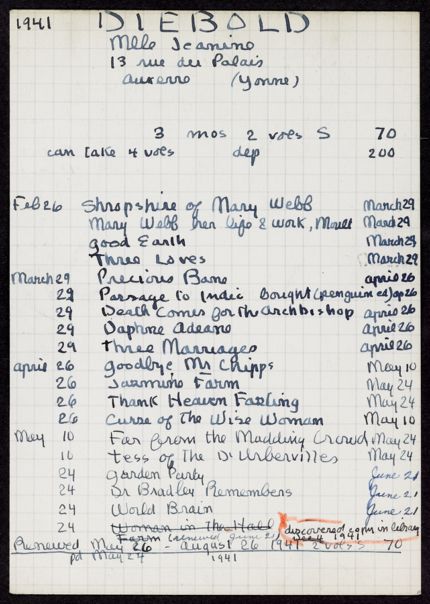 1941 DIEBOLD
Mlle Jeanine
13 rue du Palais
Auxerre (Yonne)
3 mos 2 vols S 70
can take 4 vols dep 200
Feb 26 Shropshire of Mary Webb March 29
Mary Webb her life & work, Moult March 29
Good Earth March 29
Three Loves March 29
March 29 Precious Bane April 26
29 Passage to India bought (penguin ed) ap 26
29 Death Comes for the Archbishop april 26
29 Daphne Adeane april 26
29 Three Marriages april 26
april 26 Goodbye, Mr Chipps May 10
26 Jasmine Farm May 24
26 Thank Heaven Fasting May 24
26 Curse of the Wise Woman May 10
May 10 Far from the Madding Crowd May 24
10 Tess of the D'Urbervilles May 24
24 Garden Party June 21
24 Dr Bradley Remembers June 21
24 World Brain June 21
24 Woman in the Hall discovered copy in library
Farm (renewed June 21) 1941
Renewed May 26 - August 26 1941 2 vols S 70
pd May 24 1941